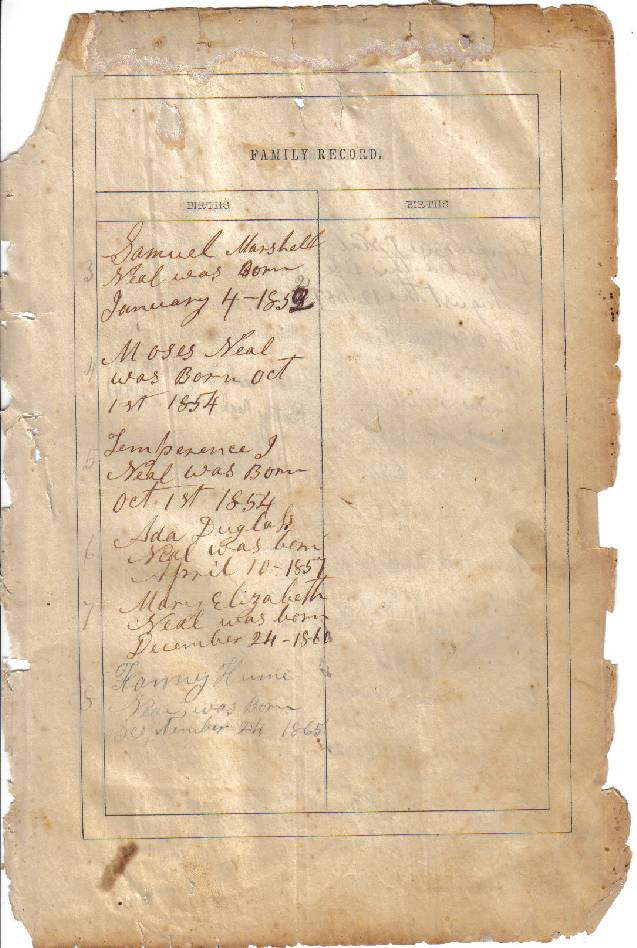 FAMILY RECORD.
BIRTHS
BIRTHS
3 Samuel Marshell
Neal was Born
January 4-1852
4 Moses Neal
was Born Oct
1st 1854
5 Temperence J
Neal was Born
Oct 1st 1854
6 Ada Duglass
Neal was born
April 10-1857
7 Mary Elizabeth
Neal was born
December 24-1860
8 Fanney Hume
Neal was Born
September 24 1865